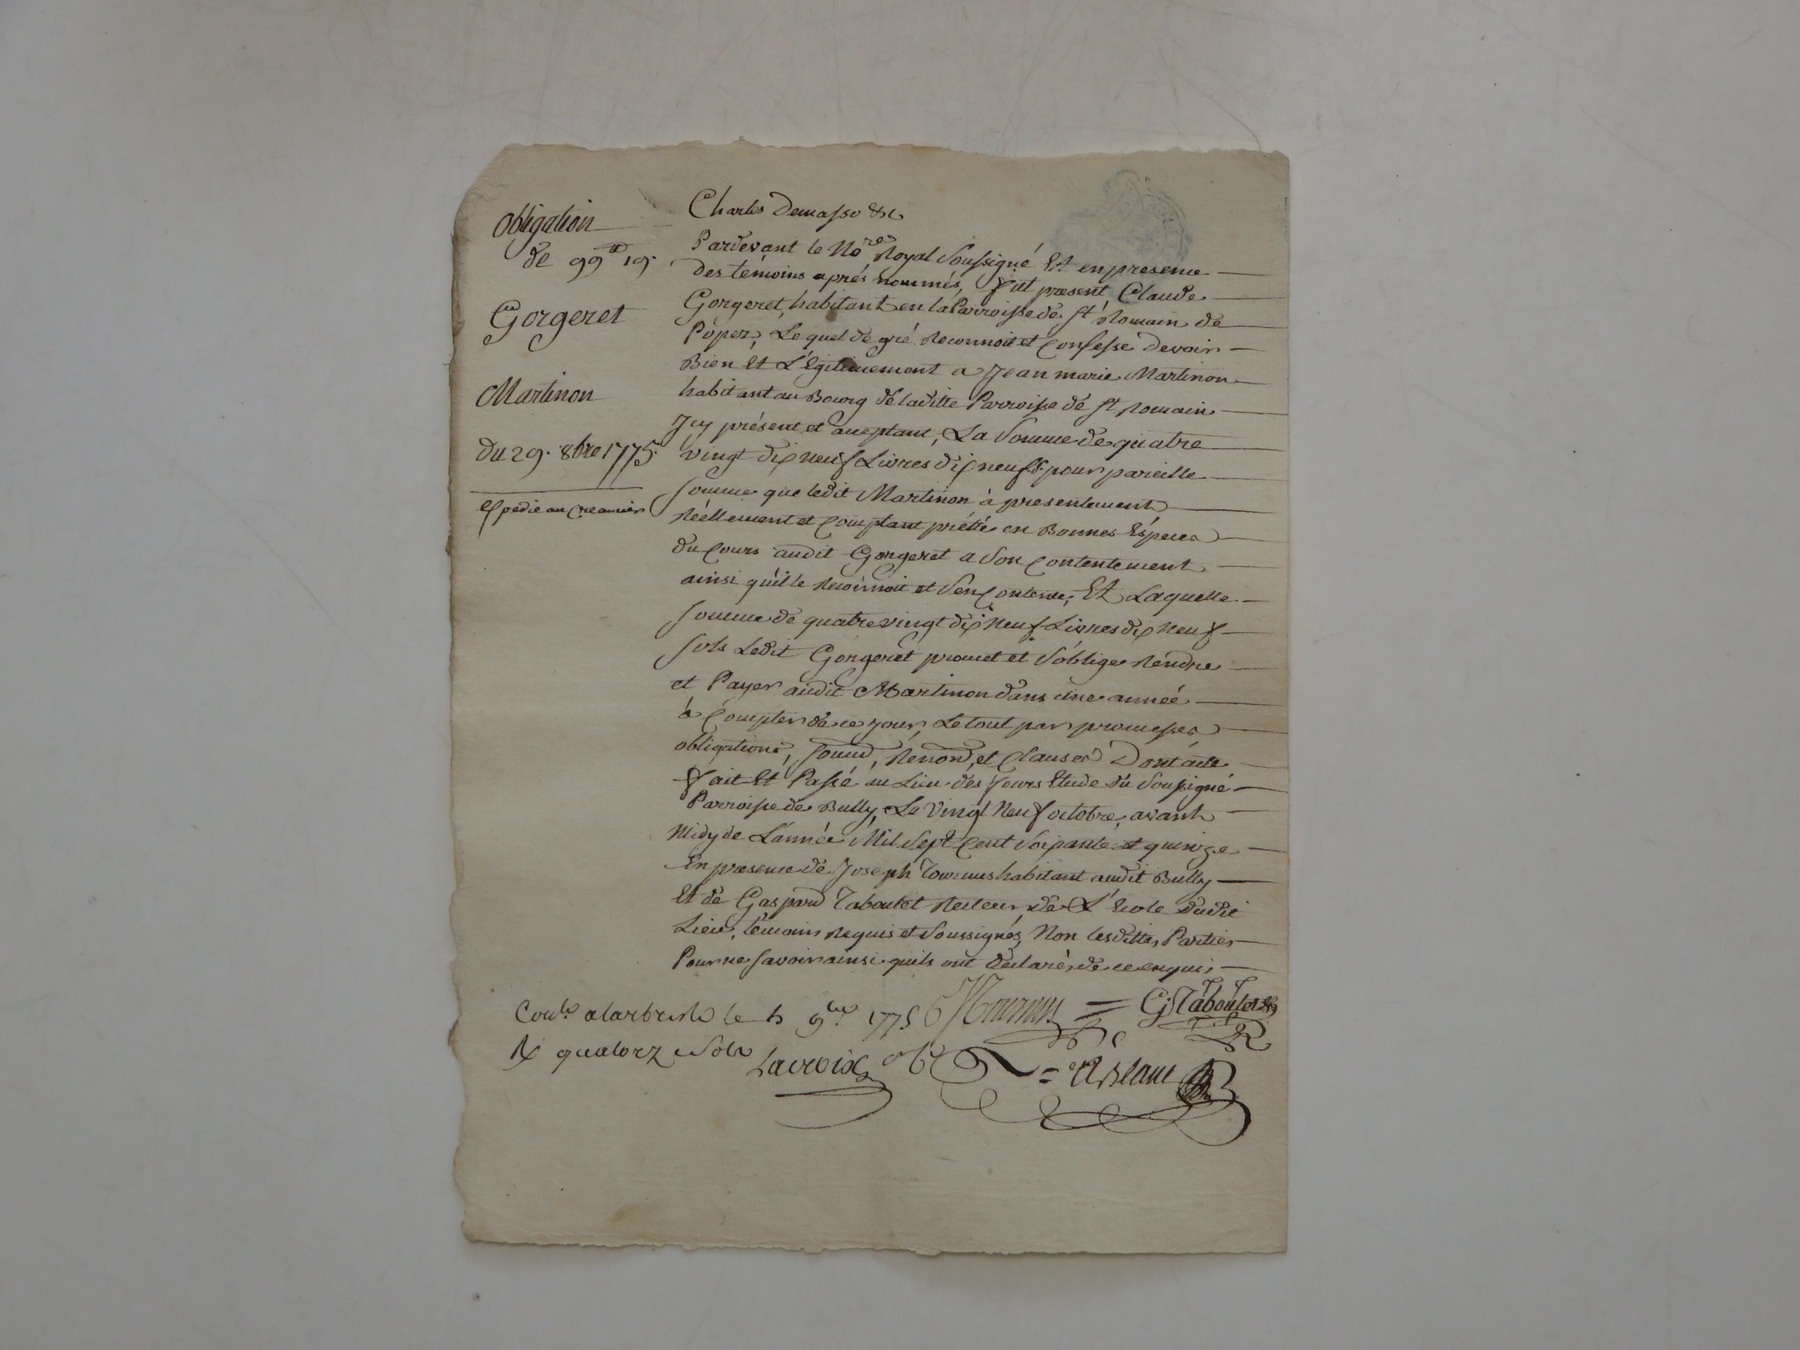 Obligation
de 99lt 19s
Gorgeret
Martinon
Du 29. 8bre 1775.
Expedié au Creancier
Charles Demasso &c
Pardevant le Nore Royal Soussigné Et en presence
des témoins aprés nommés, fut present Claude
Gorgeret, habitant en la Parroisse de St Romain de
Pôpez, Lequel de gré Reconnoit et Confesse devoir
Bien Et Légitimement a Jean marie Martinon
habitant au Bourg de laditte Parroisse de St Romain
Icy présent et acceptant, La Somme de quatre
vingt dix neuf Livres dix neuf s. pour pareille
Somme que ledit Martinon à presentement
Réellement et Comptant prétté en Bonnes Especes
du Cours audit Gorgeret a Son Contentement
ainsi qu'il le Reconnoit et S'en Contente; Et Laquelle
Somme de quatre vingt dix Neuf Livres dix Neuf
sols Ledit Gorgeret promet et S'oblige Rendre
et Payer audit Martinon dans une année
à Compter de ce jour, Le tout par promesses
obligations, Soumd, Renond, et Clauses Dont acte
fait Et Passé au Lieu des fours Etude du Soussigné
Parroisse de Bully, Le Vingt Neuf octobre, avant
Midy de L'année Mil Sept Cent Soixante et quinze
En presence de Joseph Tournus habitant audit Bully
Et de Gaspard Taboulet Recteur de L'Ecole dudit
Lieu, témoins Requis et Soussignés, Non lesdittes Parties
Pour ne Savoir ainsi quils ont déclaré de ce enquis
Conlé a larbresle le 5 9bre 1775
R quatorz sols
Lacroix
Tournus
G Taboulet